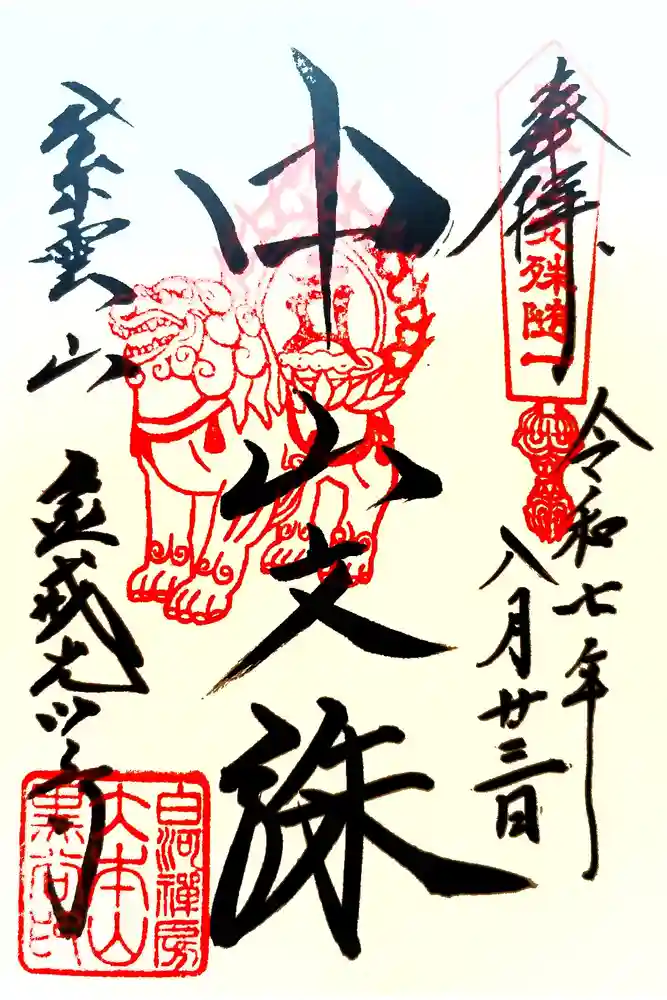 奉拝
文殊随一
令和七年
八月廿三日
中山文殊
紫雲山
金戒光明寺
白河禅房
大本山